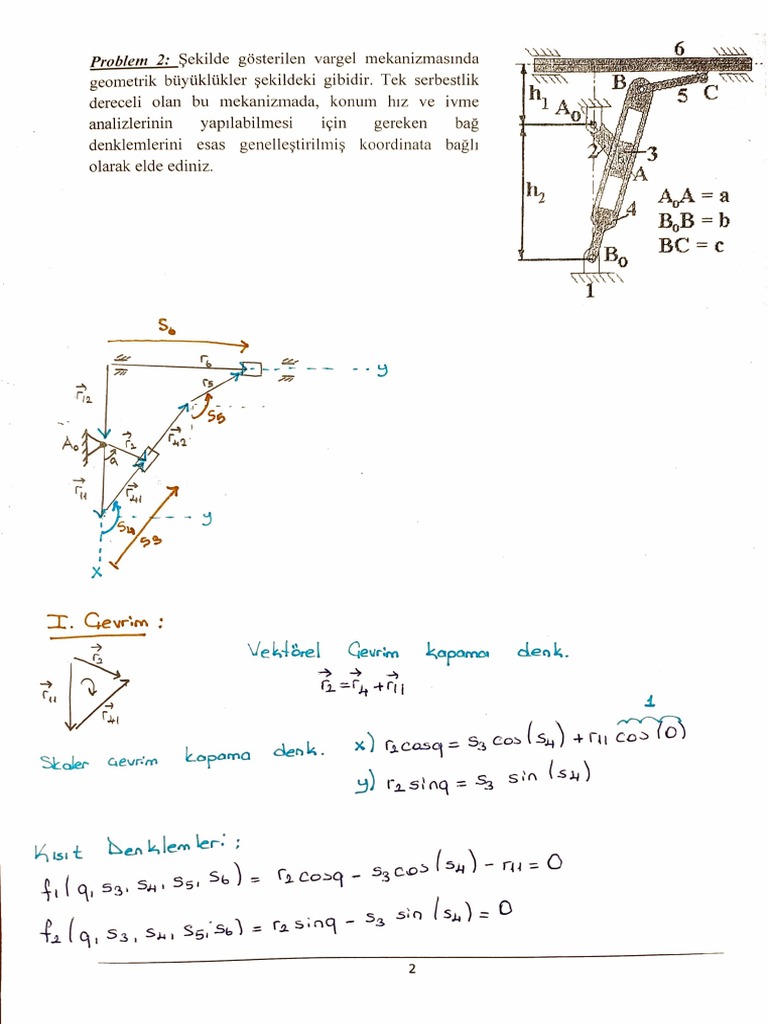 Problem 2: Şekilde gösterilen vargel mekanizmasında
geometrik büyüklükler şekildeki gibidir. Tek serbestlik
dereceli olan bu mekanizmada, konum hız ve ivme
analizlerinin yapılabilmesi için gereken bağ
denklemlerini esas genelleştirilmiş koordinata bağlı
olarak elde ediniz.
6
B
5 C
h₁
A₀
2
3
A
h₂
4
A₀A = a
B₀B = b
BC = c
B₀
1
S₆
r₆
y
r₅
S₅
r₁₂
r₄₂
A₀
r₂
a
r₁₁
r₄₁
S₄
S₃
y
x
I. Çevrim :
Vektörel Çevrim kapama denk.
r₂ = r₄ + r₁₁
r₂
r₁₁
r₄₁
1
Skaler çevrim kapama denk. x) r₂cosq = s₃ cos(s₄) + r₁₁ cos(0)
y) r₂ sinq = s₃ sin(s₄)
Kısıt Denklemleri ;
f₁(q, s₃, s₄, s₅, s₆) = r₂cosq - s₃cos(s₄) - r₁₁ = 0
f₂(q, s₃, s₄, s₅, s₆) = r₂sinq - s₃ sin(s₄) = 0
2